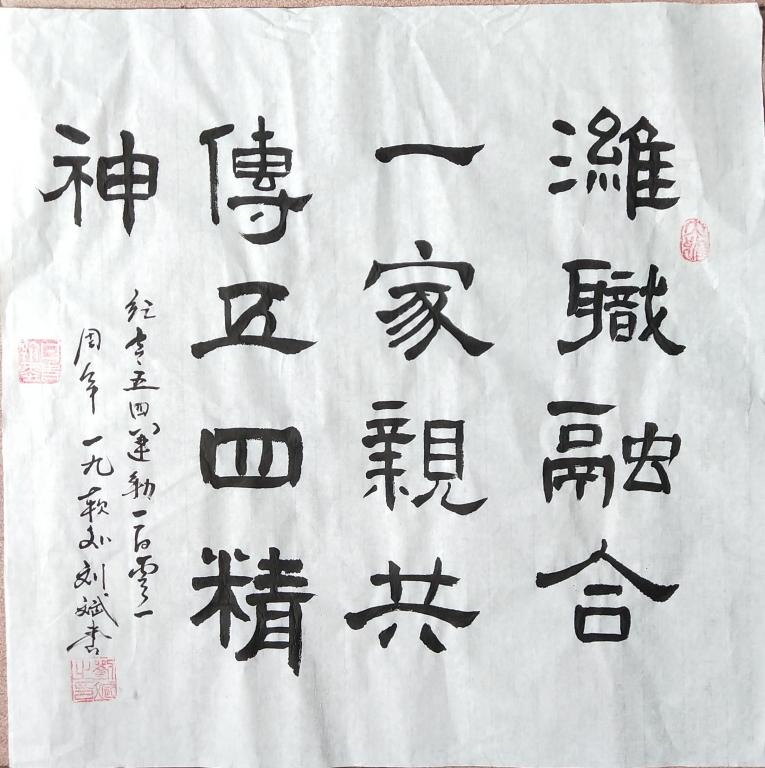 潍職融合
一家親共
傳五四精
神
纪念五四运动一百零一
周年 一九软 刘斌書